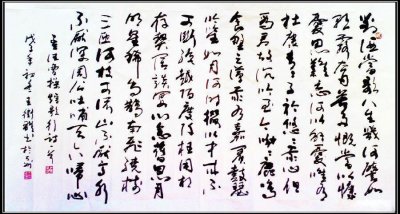 對酒當歌人生幾何譬如
朝露去日苦多慨當以慷
憂思難忘何以解憂唯有
杜康青青子衿悠悠我心但
為君故沉吟至今呦呦鹿鳴
食野之苹我有嘉賓鼓瑟
吹笙明明如月何時可掇憂從中來不
可斷絕越陌度阡枉用相
存契闊談讌心念舊恩月
明星稀烏鵲南飛繞樹
三匝何枝可依山不厭高水
不厭深周公吐哺天下歸心
曹操短歌行詩
戊子年初春王